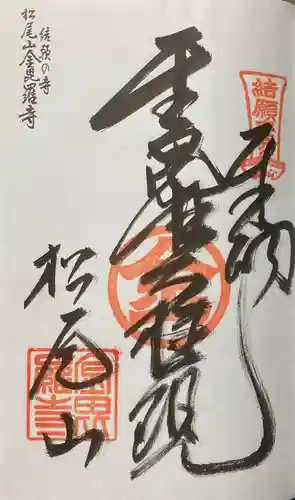 結願
奉納
金毘羅権現
松尾山
金毘
羅寺
結願の寺
松尾山金毘羅寺